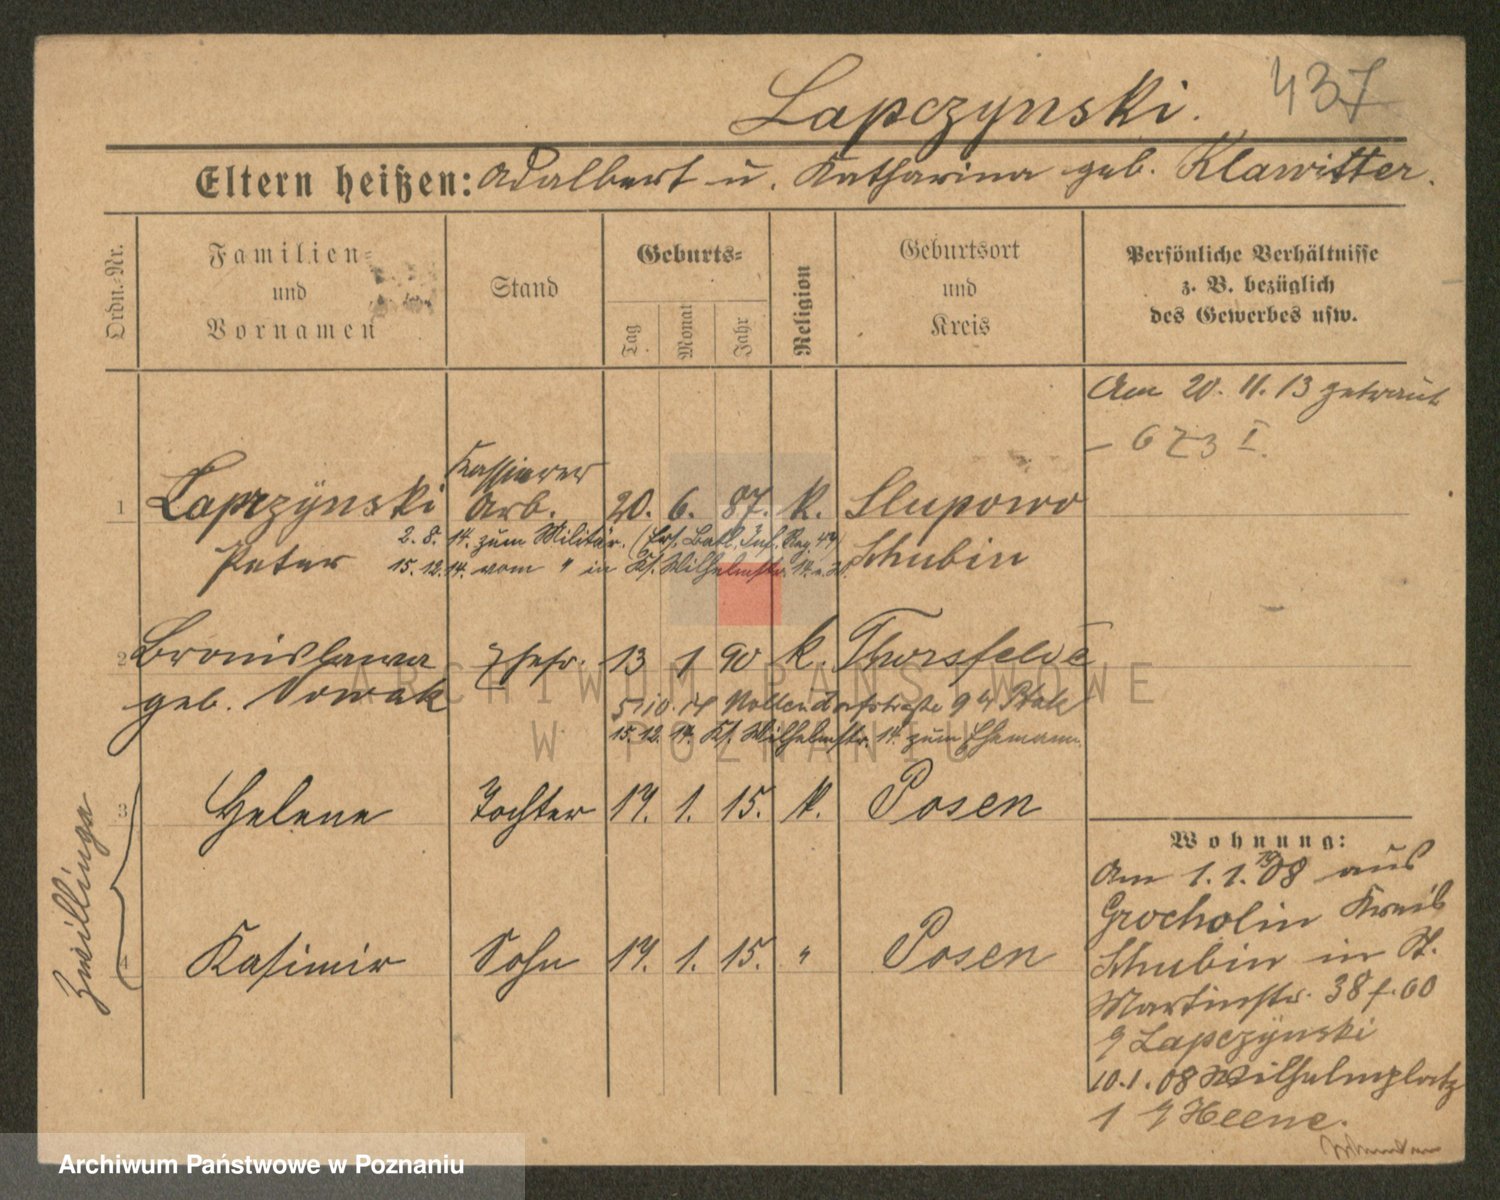 Lapczynski. 437
Eltern heißen: Adalbert u. Katharina geb. Klawitter.
Ordn.-Nr.
Familien-
und
Vornamen
Stand
Geburts-
Tag
Monat
Jahr
Religion
Geburtsort
und
Kreis
Persönliche Verhältnisse
z. B. bezüglich
des Gewerbes usw.
Am 20. 11. 13 getraut
Kassierer
1 Lapczynski Arb. 20. 6. 87. k. Slupowo
2. 8. 14. zum Militär. (Ers. Batl. Inf. Reg. 47)
Peter Schubin
15. 12. 14. vom " in Ks. Wilhelmstr. 14
2 Bronislawa Ehefr. 13 1 90 k. Thorsfelde
geb. Nowak
5. 10. 14 Nollendorfstraße 9
15. 12. 14. Ks. Wilhelmstr. 14. zum Ehemann.
Zwillinge
3 Helene Tochter 14. 1. 15. k. Posen
4 Kasimir Sohn 14. 1. 15. " Posen
Wohnung:
Am 1. 1. 1908 aus
Grocholin Kreis
Schubin in St.
Martinstr. 38
Lapczynski
10. 1. 08 Wilhelmplatz
1 Heene.
ARCHIWUM PAŃSTWOWE
W POZNANIU
Archiwum Państwowe w Poznaniu